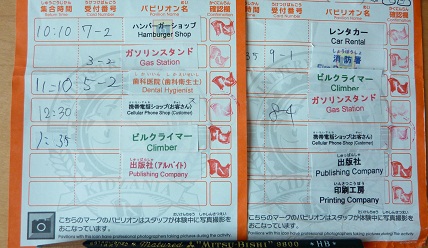 集合時間 受付番号 パビリオン名 確認欄
Return Time Card Number Pavilion Name (Confirmation)
10:10 7-2 ハンバーガーショップ
Hamburger Shop
3-2 ガソリンスタンド
Gas Station
11:10 5-2 歯科医院(歯科衛生士)
Dental Hygienist
12:30 携帯電話ショップ(お客さん)
Cellular Phone Shop (Customer)
1:35 ビルクライマー
Climber
出版社(アルバイト)
Publishing Company
こちらのマークのパビリオンはスタッフが体験中に写真撮影を
おこなっています。
集合時間 受付番号 パビリオン名 確認欄
Return Time Card Number Pavilion Name (Confirmation)
レンタカー
Car Rental
35 9-1 消防署
ビルクライマー
Climber
8-4 ガソリンスタンド
Gas Station
携帯電話ショップ(お客さん)
Cellular Phone Shop (Customer)
出版社
Publishing Company
印刷工房
Printing Company
こちらのマークのパビリオンはスタッフが体験中に写真撮影を
おこなっています。
Matured "MITSU-BISHI" 9800 HB